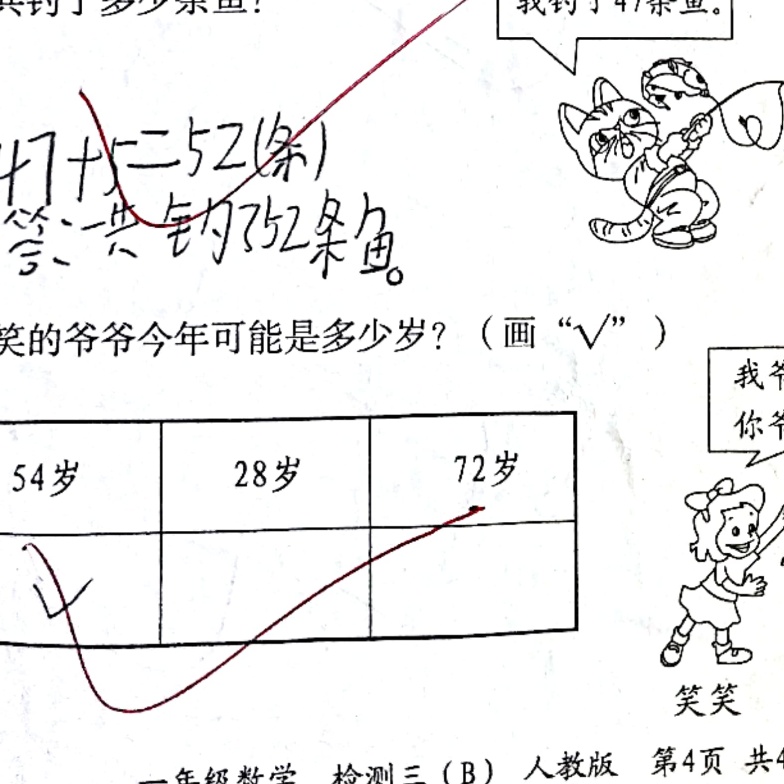 共钓了多少条鱼？
我钓了47条鱼。
47+5=52(条)
答：一共钓了52条鱼。
笑的爷爷今年可能是多少岁？（画“√”）
我爷
你爷
54岁 28岁 72岁
√
笑笑
一年级数学 检测三（B） 人教版 第4页 共4